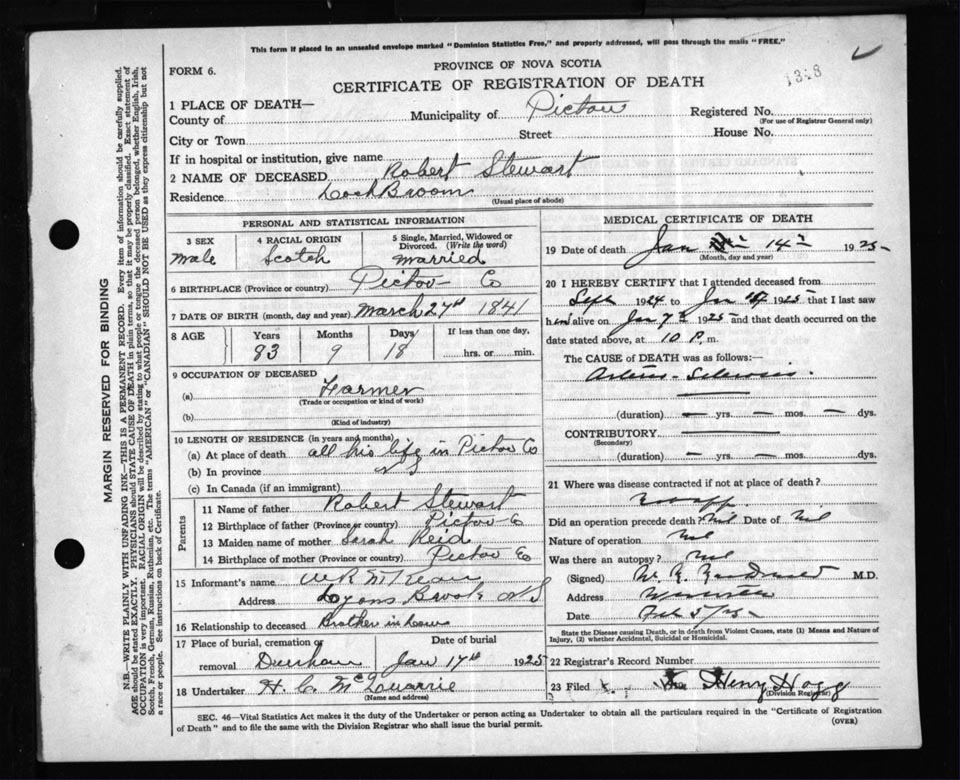 This form if placed in an unsealed envelope marked "Dominion Statistics Free," and properly addressed, will pass through the mails "FREE."
1348
FORM 6.
PROVINCE OF NOVA SCOTIA
CERTIFICATE OF REGISTRATION OF DEATH
1 PLACE OF DEATH—
County of
Municipality of Pictou
Registered No.
(For use of Registrar General only)
City or Town
Street
House No.
If in hospital or institution, give name
2 NAME OF DECEASED Robert Stewart
Residence Loch Broom
(Usual place of abode)
PERSONAL AND STATISTICAL INFORMATION
3 SEX
Male
4 RACIAL ORIGIN
Scotch
5 Single, Married, Widowed or Divorced. (Write the word)
Married
6 BIRTHPLACE (Province or country) Pictou Co
7 DATE OF BIRTH (month, day and year) March 27th 1841
8 AGE
Years
83
Months
9
Days
18
If less than one day,
hrs. or min.
9 OCCUPATION OF DECEASED
(a) Farmer
(Trade or occupation or kind of work)
(b)
(Kind of industry)
10 LENGTH OF RESIDENCE (in years and months)
(a) At place of death all his life in Pictou Co
(b) In province NS
(c) In Canada (if an immigrant)
Parents
11 Name of father Robert Stewart
12 Birthplace of father (Province or country) Pictou Co
13 Maiden name of mother Sarah Reid
14 Birthplace of mother (Province or country) Pictou Co
15 Informant's name
Address Lyons Brook NS
16 Relationship to deceased Brother in Law
17 Place of burial, cremation or removal Durham
Date of burial
Jan 17th 1925
18 Undertaker H. C. McQuarrie
(Name and address)
MEDICAL CERTIFICATE OF DEATH
19 Date of death Jan 14th 1925
(Month, day and year)
20 I HEREBY CERTIFY that I attended deceased from
Sept 1924 to Jan 1925 that I last saw
him alive on Jan 7th 1925 and that death occurred on
date stated above, at 10 P. m.
The CAUSE of DEATH was as follows:
(duration) — yrs. — mos. — dys.
CONTRIBUTORY
(Secondary)
(duration) — yrs. — mos. — dys.
21 Where was disease contracted if not at place of death?
Did an operation precede death? Nil Date of Nil
Nature of operation Nil
Was there an autopsy? Nil
(Signed) M.D.
Address
Date Feb 5/25
State the Disease causing Death, or in death from Violent Causes, state (1) Means and Nature of Injury, (2) whether Accidental, Suicidal or Homicidal.
22 Registrar's Record Number
23 Filed Henry Hogg
(Division Registrar)
SEC. 46—Vital Statistics Act makes it the duty of the Undertaker or person acting as Undertaker to obtain all the particulars required in the "Certificate of Registration of Death" and to file the same with the Division Registrar who shall issue the burial permit.
(OVER)
MARGIN RESERVED FOR BINDING
N.B.—WRITE PLAINLY WITH UNFADING INK—THIS IS A PERMANENT RECORD. Every item of information should be carefully supplied.
AGE should be stated EXACTLY. PHYSICIANS should STATE CAUSE OF DEATH in plain terms, so that it may be properly classified. Exact statement of
OCCUPATION is very important. RACIAL ORIGIN will be described by stating to what people or tongue the deceased person belonged, whether English, Irish,
Scotch, French, German, Russian, Ruthenian, etc. The terms "AMERICAN" or "CANADIAN" SHOULD NOT BE USED as they express citizenship but not
a race or people. See instructions on back of Certificate.